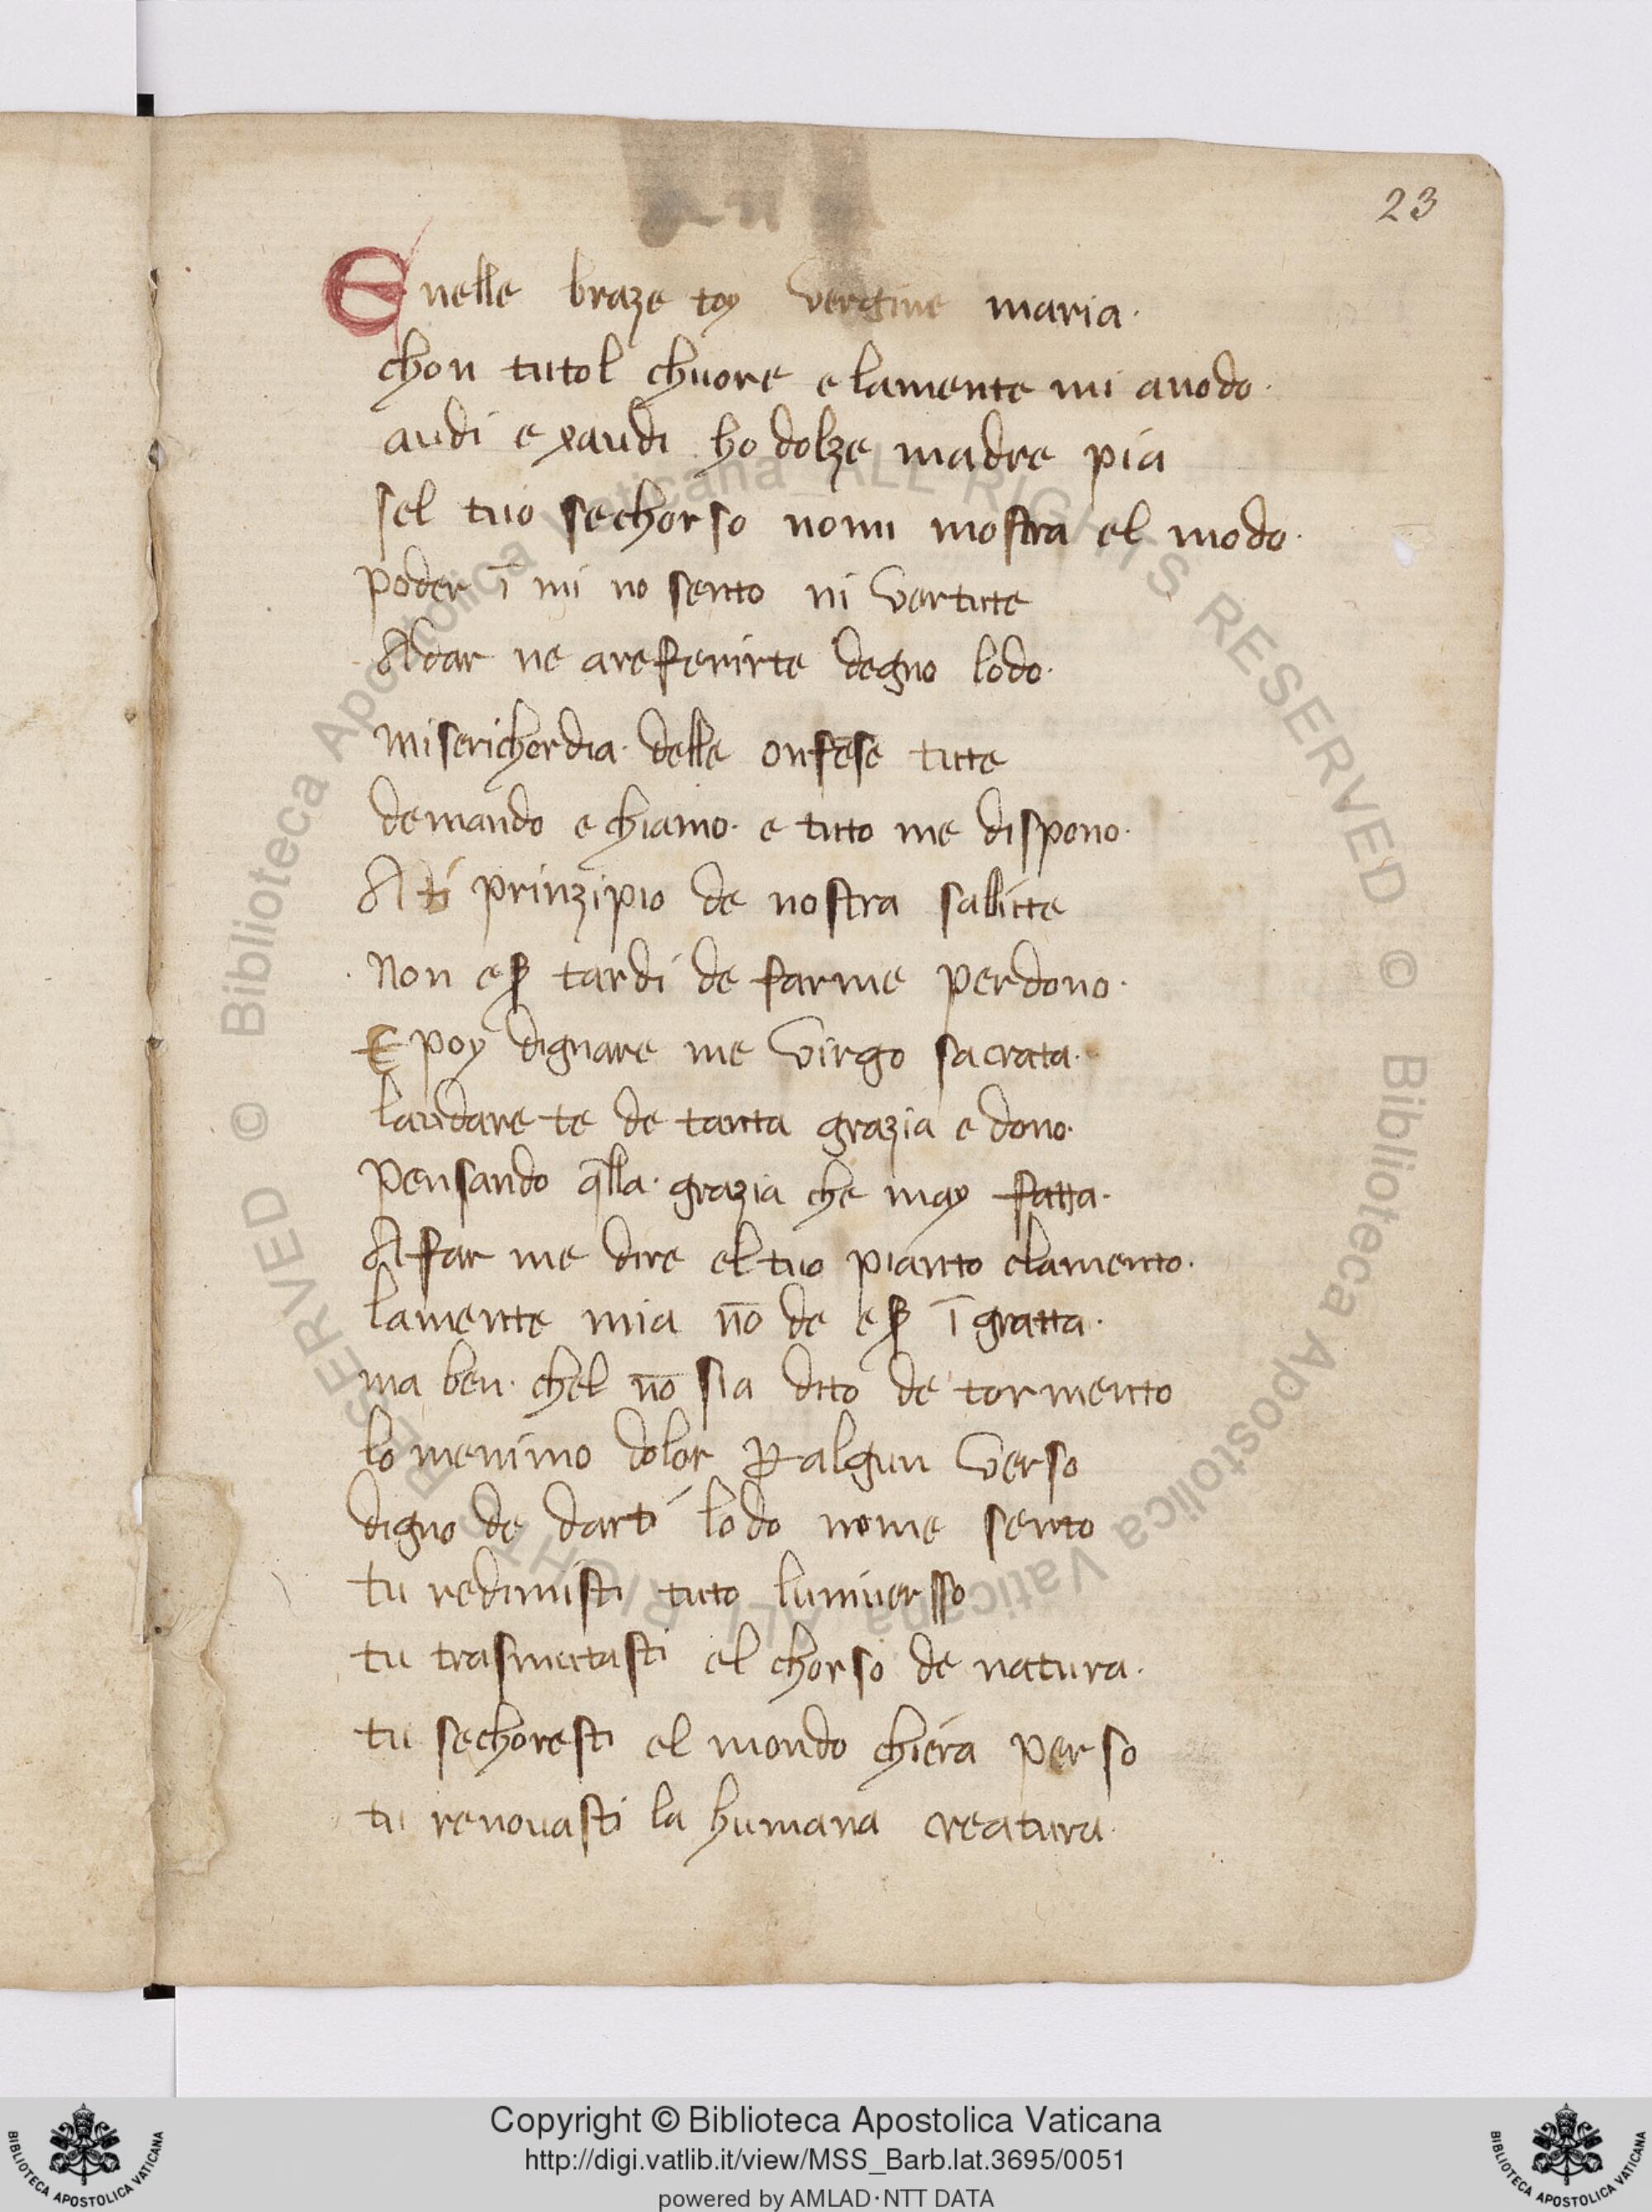 23
Enelle braze toy vergine maria·
chon tutol chuore e lamente mi anodo·
audi e xaudi ho dolze madre pia
sel tuo sechorso nomi mostra el modo·
poder ī mi no sento ni vertute
Adar ne areferirte degno lodo·
Miserichordia· delle onfese tute
demando e chiamo· e tuto me dispono·
A ti prinzipio de nostra sallute
Non eꝭ tardi de farme perdono·
E poy dignare me virgo sacrata·
laudare te de tanta grazia e dono·
Pensando q̄lla· grazia che may fatta·
A far me dire el tuo pianto elamento·
lamente mia nō de eꝭ ī gratta·
ma ben· chel nō sia dito de tormento
lo menimo dolor ꝑ algun verso
digno de darti lodo nome sento
tu redimisti tuto luniversso
tu trasmutasti el chorso de natura·
tu sechoresti el mondo chiera perso
tu renouasti la humana creatura·
© Biblioteca Apostolica Vaticana ALL RIGHTS RESERVED © Biblioteca Apostolica Vaticana ALL RIGHTS RESERVED
Copyright © Biblioteca Apostolica Vaticana
http://digi.vatlib.it/view/MSS_Barb.lat.3695/0051
powered by AMLAD·NTT DATA
BIBLIOTECA APOSTOLICA VATICANA
BIBLIOTECA APOSTOLICA VATICANA